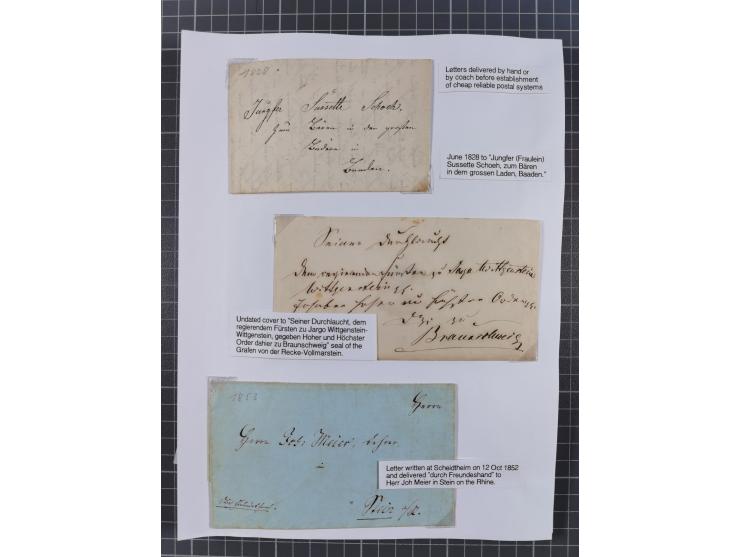 Letters delivered by hand or
by coach before establishment
of cheap reliable postal systems
1828
Jungfer Sussette Schoch.
zum Bären in den großen
Baaden.
June 1828 to "Jungfer (Fraulein)
Sussette Schoeh, zum Bären
in dem grossen Laden, Baaden."
Seiner Durchlaucht
dem regierenden Fürsten zu Sayn Wittgenstein
Wittgenstein
Braunschweig
Undated cover to "Seiner Durchlaucht, dem
regierendem Fürsten zu Jargo Wittgenstein-
Wittgenstein, gegeben Hoher und Höchster
Order dahier zu Braunschweig" seal of the
Grafen von der Recke-Vollmarstein.
1853
Herrn
Herrn Joh: Meier, Lehrer
in
Stein a/R.
Letter written at Scheidtheim on 12 Oct 1852
and delivered "durch Freundeshand" to
Herr Joh Meier in Stein on the Rhine.